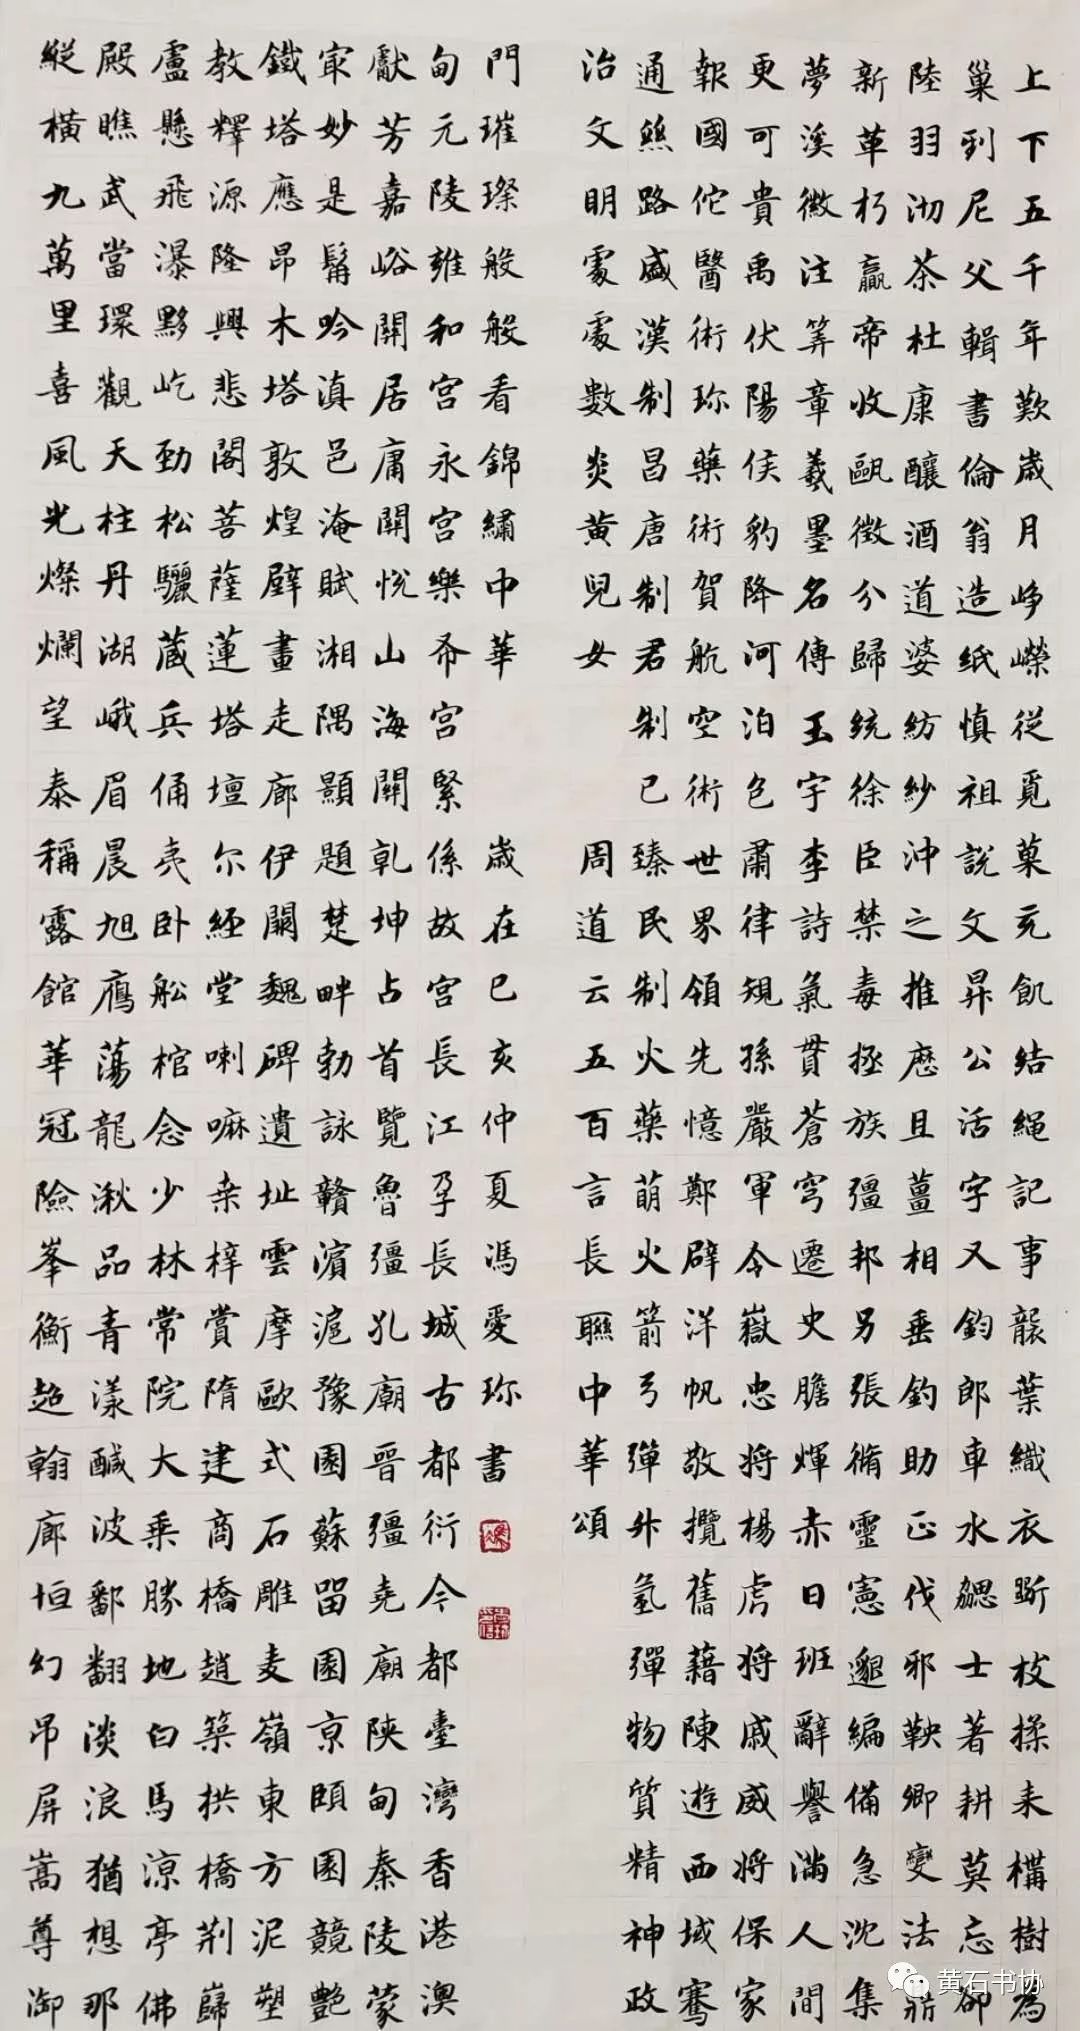 上下五千年歎歲月崢嶸從覓菓充飢結繩記事蘘葉織衣斷枝揉耒構樹為
巢到尼父輯書倫翁造紙慎祖說文昇公活字又鈞郎車水勰士著耕莫忘卻
陸羽沏茶杜康釀酒道婆紡紗沖之推歷且薑相垂釣助正伐邪鞅卿變法鼎
新革朽嬴帝收甌徵分歸統徐臣禁毒拯族彊邦另張脩靈憲邈編備急沈集
夢溪微注筭章羲墨名傳王宇李詩氣貫蒼穹遷史膽煇赤日班辭譽滿人間
更可貴禹伏陽侯豹降河泊包肅律規孫嚴軍令嶽忠將楊虎將戚威將保家
報國佗醫術珍藥術賀航空術世界領先憶鄭辟洋帆敬攬舊藉陳遊西域騫
通絲路盛漢制昌唐制君制已臻民制火藥萌火箭弓彈升氫彈物質精神政
治文明處處數炎黃兒女
周道云五百言長聯中華頌
縱橫九萬里喜風光燦爛望泰稱露館華冠險峯衡超翰廊恒幻吊屏嵩尊御
殿瞧武當環觀天柱丹湖峨眉晨旭鷹蕩龍湫品青漾醎波鄱翻淡浪猶想那
盧懸飛瀑黟屹勁松驪藏兵俑亮卧舩棺念少林常院大乘勝地白馬涼亭佛
教釋源隆興悲閣菩薩蓮塔壇尔經堂喇嘛桒梓賞隋建商橋趙築拱橋荆歸
鐵塔應昂木塔敦煌壁畫走廊伊闕魏碑遺址雲摩歐式石雕麦嶺東方泥塑
㝡妙是髯吟滇邑淹賦湘隅顥題楚畔勃詠贛濱滬豫園蘇留園京頤園競艷
獻芳嘉峪關居庸關悅山海關乾坤占首覽魯彊孔廟晉彊堯廟陝甸秦陵蒙
甸元陵雍和宮永宮樂布宮緊係故宮長江孕長城古都衍今都臺灣香港澳
門璀璨般般看錦繡中華
歲在己亥仲夏馮愛珍書
黄石书协